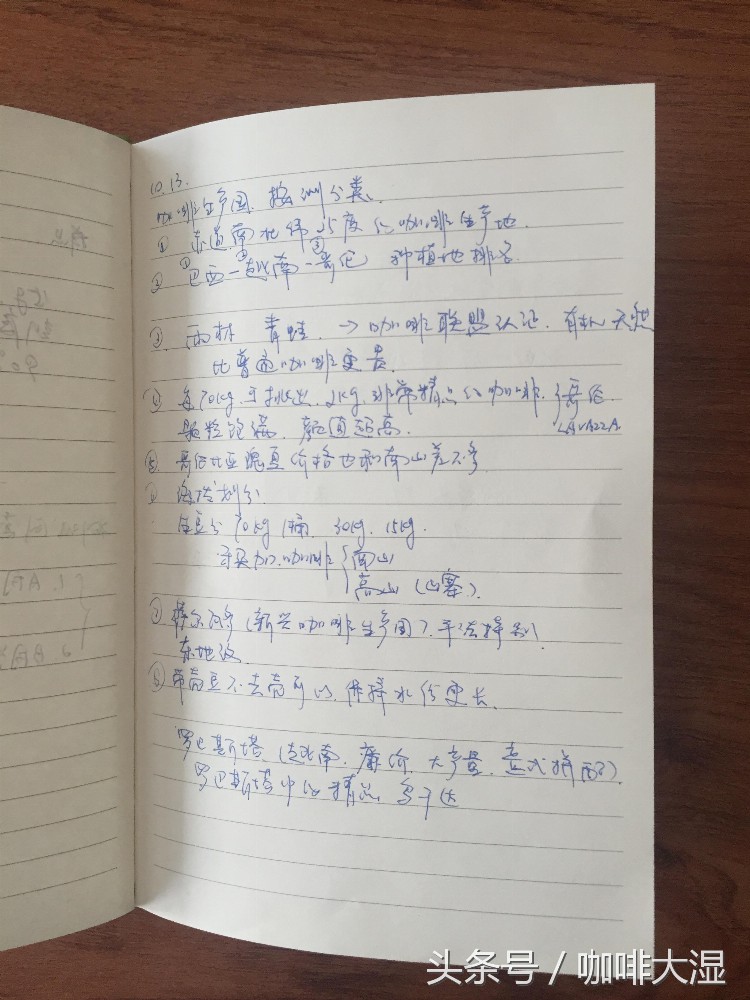 10.13.
咖啡生产国,按洲分类
① 赤道南北纬25度以咖啡生产地.
② 巴西-越南-哥伦 种植地排名
① ② ③
③ 雨林 青蛙 → 咖啡联盟认证.有机天然
比普通咖啡更贵.
④ 每70kg.手挑出.2kg.非常精品的咖啡.{哥伦
颗粒饱满.颜值超高. LAVAZZA
⑤ 哥伦比亚瑰夏价格也和南山差不多
⑥ 划分
生豆分70kg 1桶. 30kg. 15kg.
牙买加.咖啡{南山
高山(山寨).
⑦ 萨尔瓦多(新兴咖啡生产国).
⑧ 带壳豆不去壳可以保持水份更长.
罗巴斯塔.(越南.廉价.大产量.意式拼配).
罗巴斯塔中的精品 乌干达
头条号 / 咖啡大湿